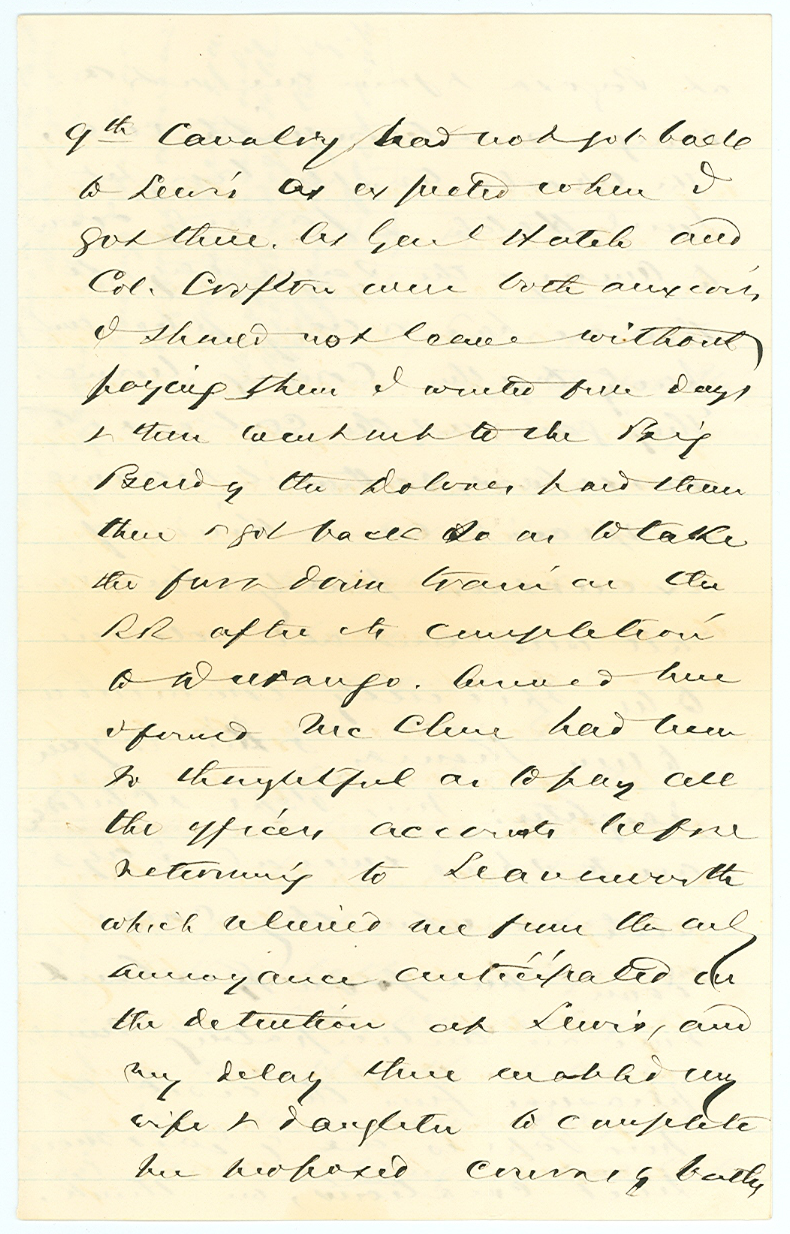 9th Cavalry had not got back
to Lewis as expected when I
got there. As Genl Hatch and
Col. Crofton were both anxious
I should not leave without
paying them I waited five days
& then went out to the Big
Bend of the Dolores paid them
there & got back so as to take
the first down train on the
RR after its completion
to Durango. Arrived here
I found McClure had been
so thoughtful as to pay all
the officers accounts before
returning to Leavenworth
which relieved me from the only
annoyance anticipated in
the detention at Lewis, and
my delay there enabled my
wife & daughter to complete
her proposed course of baths